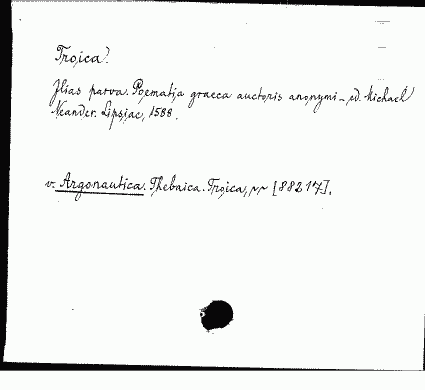 Troica.
Ilias parva. Poematia graeca auctoris anonymi - ed. Michael
Neander. Lipsiae, 1588.
v. Argonautica. Thebaica. Troica, [88217].